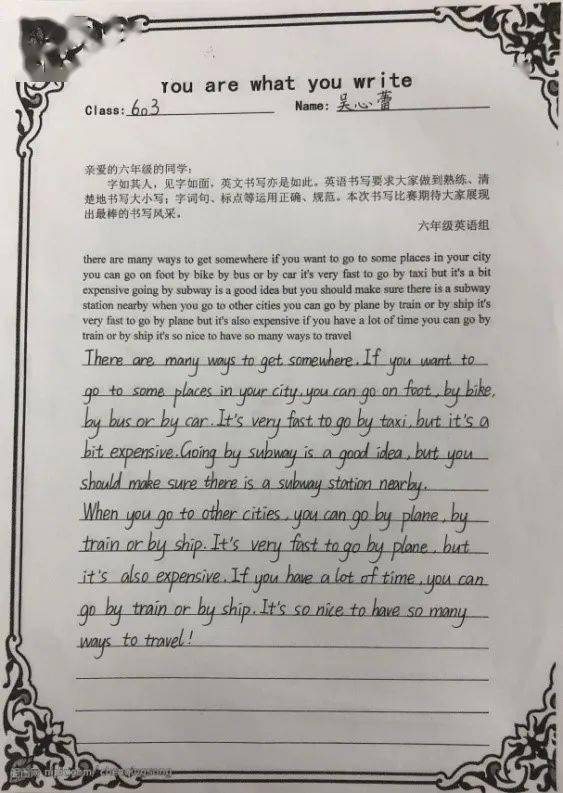 You are what you write
Class: 603 Name: 吴心蕾
亲爱的六年级的同学：
字如其人，见字如面，英文书写亦是如此。英语书写要求大家做到熟练、清
楚地书写大小写；字词句、标点等运用正确、规范。本次书写比赛期待大家展现
出最棒的书写风采。
六年级英语组
there are many ways to get somewhere if you want to go to some places in your city
you can go on foot by bike by bus or by car it's very fast to go by taxi but it's a bit
expensive going by subway is a good idea but you should make sure there is a subway
station nearby when you go to other cities you can go by plane by train or by ship it's
very fast to go by plane but it's also expensive if you have a lot of time you can go by
train or by ship it's so nice to have so many ways to travel
There are many ways to get somewhere. If you want to
go to some places in your city, you can go on foot, by bike,
by bus or by car. It's very fast to go by taxi, but it's a
bit expensive. Going by subway is a good idea, but you
should make sure there is a subway station nearby.
When you go to other cities, you can go by plane, by
train or by ship. It's very fast to go by plane, but
it's also expensive. If you have a lot of time, you can
go by train or by ship. It's so nice to have so many
ways to travel!